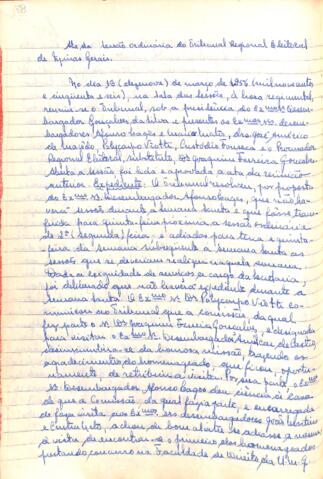 Ata da sessão ordinária do Tribunal Regional Eleitoral
de Minas Gerais.
Ao dia 19 (dezenove) de março de 1956 (mil novecentos
e cinquenta e seis), na sala das sessões, à hora regimental,
reuniu-se o Tribunal, sob a presidência do Exmo. Sr. Desem-
bargador Gonçalves da Silva e presentes os Exmos. srs. desem-
bargadores Afonso Lages e drs. José Américo
de Macêdo, Policarpo Viotti, Custódio e o Procurador
Regional Eleitoral, substituto, dr. Joaquim Ferreira Gonçalves.
Aberta a sessão foi lida e aprovada a ata da reunião
anterior. Expediente: O Tribunal resolveu, por proposta
do Exmo. Sr. Desembargador Afonso Lages, que não ha-
veria sessões durante a semana santa e que fosse trans-
ferida para quinta-feira próxima a sessão ordinária
de 2ª (segunda) feira, e adiadas para terça e quinta-
feira da semana subsequente à semana santa as
sessões que se deveriam realizar naquela semana.
Dada a exiguidade de serviços a cargo da Secretaria,
foi deliberado que não haveria expediente durante a
semana santa. O Exmo. Sr. Dr. Policarpo Viotti co-
municou ao Tribunal que a comissão, da qual
fez parte o Sr. Dr. Joaquim Ferreira Gonçalves, e designada
para visitar o Exmo. Sr. Desembargador Amilcar de Castro,
desincumbira-se da honrosa missão, trazendo os
agradecimentos do homenageado que ficou, oportu-
namente, de retribuir a visita. Por sua parte, o Exmo.
Sr. Desembargador Afonso Lages deu ciência à Casa
de que a Comissão, da qual fazia parte, e encarregada
de fazer visita aos Exmos. srs. desembargadores João Martins
e achou de bom alvitre se adiasse a mesma
visita de encontrar-se o primeiro dos homenageados
prestando concurso na Faculdade de Direito da U.M.G.